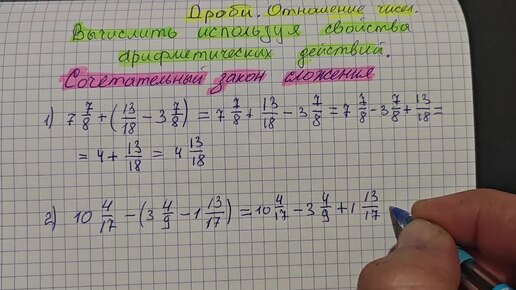 Дроби. Отношение чисел.
Вычислить используя свойства
арифметических действий.
Сочетательный закон сложения
1) 7 7/8 + (13/18 - 3 7/8) = 7 7/8 + 13/18 - 3 7/8 = 7 7/8 - 3 7/8 + 13/18 =
= 4 + 13/18 = 4 13/18
2) 10 4/17 - (3 4/9 - 1 13/17) = 10 4/17 - 3 4/9 + 1 13/17